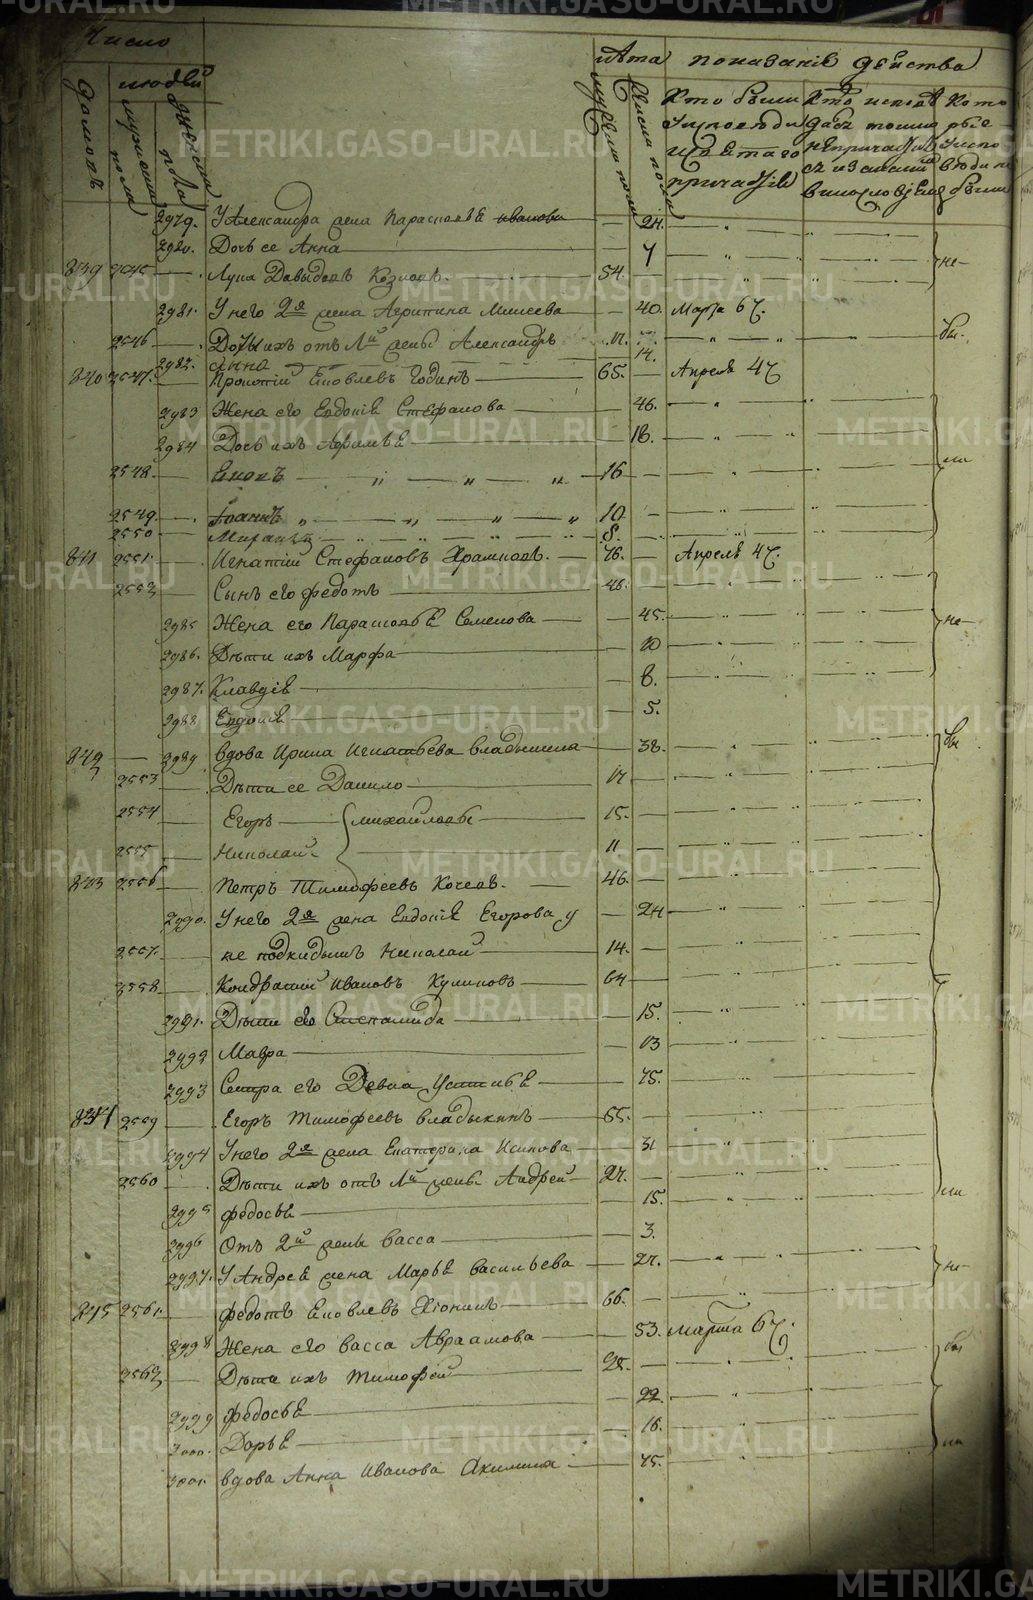 Число
людей
лѣта показанiе действа
домовъ
мужеска пола
женска пола
мужеска пола
женска пола
Кто были
у исповеди
и св. таго
причастiя
Кто исповѣ
дался токмо
не причастил
ся и за какимъ
винословiемъ
Кото
рые
у испо
веди не
были
2979. У Александра жена Парасковѣя Иванова — 24.
2980. Дочь ее Анна — 7
839 2545 Лука Давыдовъ Козловъ. 54.
2981. У него 2я жена Агрипина Моисеева — 40. Марта 67.
2546 Дѣти ихъ отъ 1й жены Александръ 17.
2982. Анна 14.
840 2547. Прокопiй Яковлевъ Годинъ 65. — Апреля 47
2983 Жена его Евдокiя Стефанова 46.
2984 Дочь ихъ 18.
2548. Яковъ 16
2549. Iоаннъ 10
2550 Михаилъ 8.
841 2551. Игнатiй Стефановъ Храмцовъ. 76. — Апреля 47.
2552 Сынъ его Федотъ 46.
2985 Жена его Парасковѣя Семенова — 45.
2986. Дѣти ихъ Марфа — 10
2987. Клавдiя — 8.
2988 Евдокiя — 5.
842 2989 Вдова Ирина Игнатьева Владыкина — 38.
2553 Дѣти ее Данило 17
2554 Егоръ Михайловы 15.
2555 Николай 11
843 2556 Петръ Тимофеевъ Кочевъ. 46.
2990. У него 2я жена Евдокiя Егорова у — 24
2557. нее подкидышъ Николай 14.
2558. Кондратiй Ивановъ Куликовъ 64
2991. Дѣти его Степанида — 15.
2992 Мавра — 13
2993 Сестра его Девка Устинiя — 75.
844 2559 Егоръ Тимофеевъ Владыкинъ 55.
2994 У него 2я жена Екатерина Исакова — 31
2560 Дѣти ихъ отъ 1й жены Андрей 27.
2995 Федосья — 15.
2996 Отъ 2й жены Васса — 3.
2997. У Андрея жена Марья Васильева — 27.
845 2561. Федотъ Яковлевъ 66.
2998 Жена его Васса Авраамова — 53. Марта 67.
2562 Дѣти ихъ Тимофей 25.
2999 Федосья — 22.
3000. Дарья — 16.
3001. Вдова Анна Иванова Акимова — 75.
METRIKI.GASO-URAL.RU